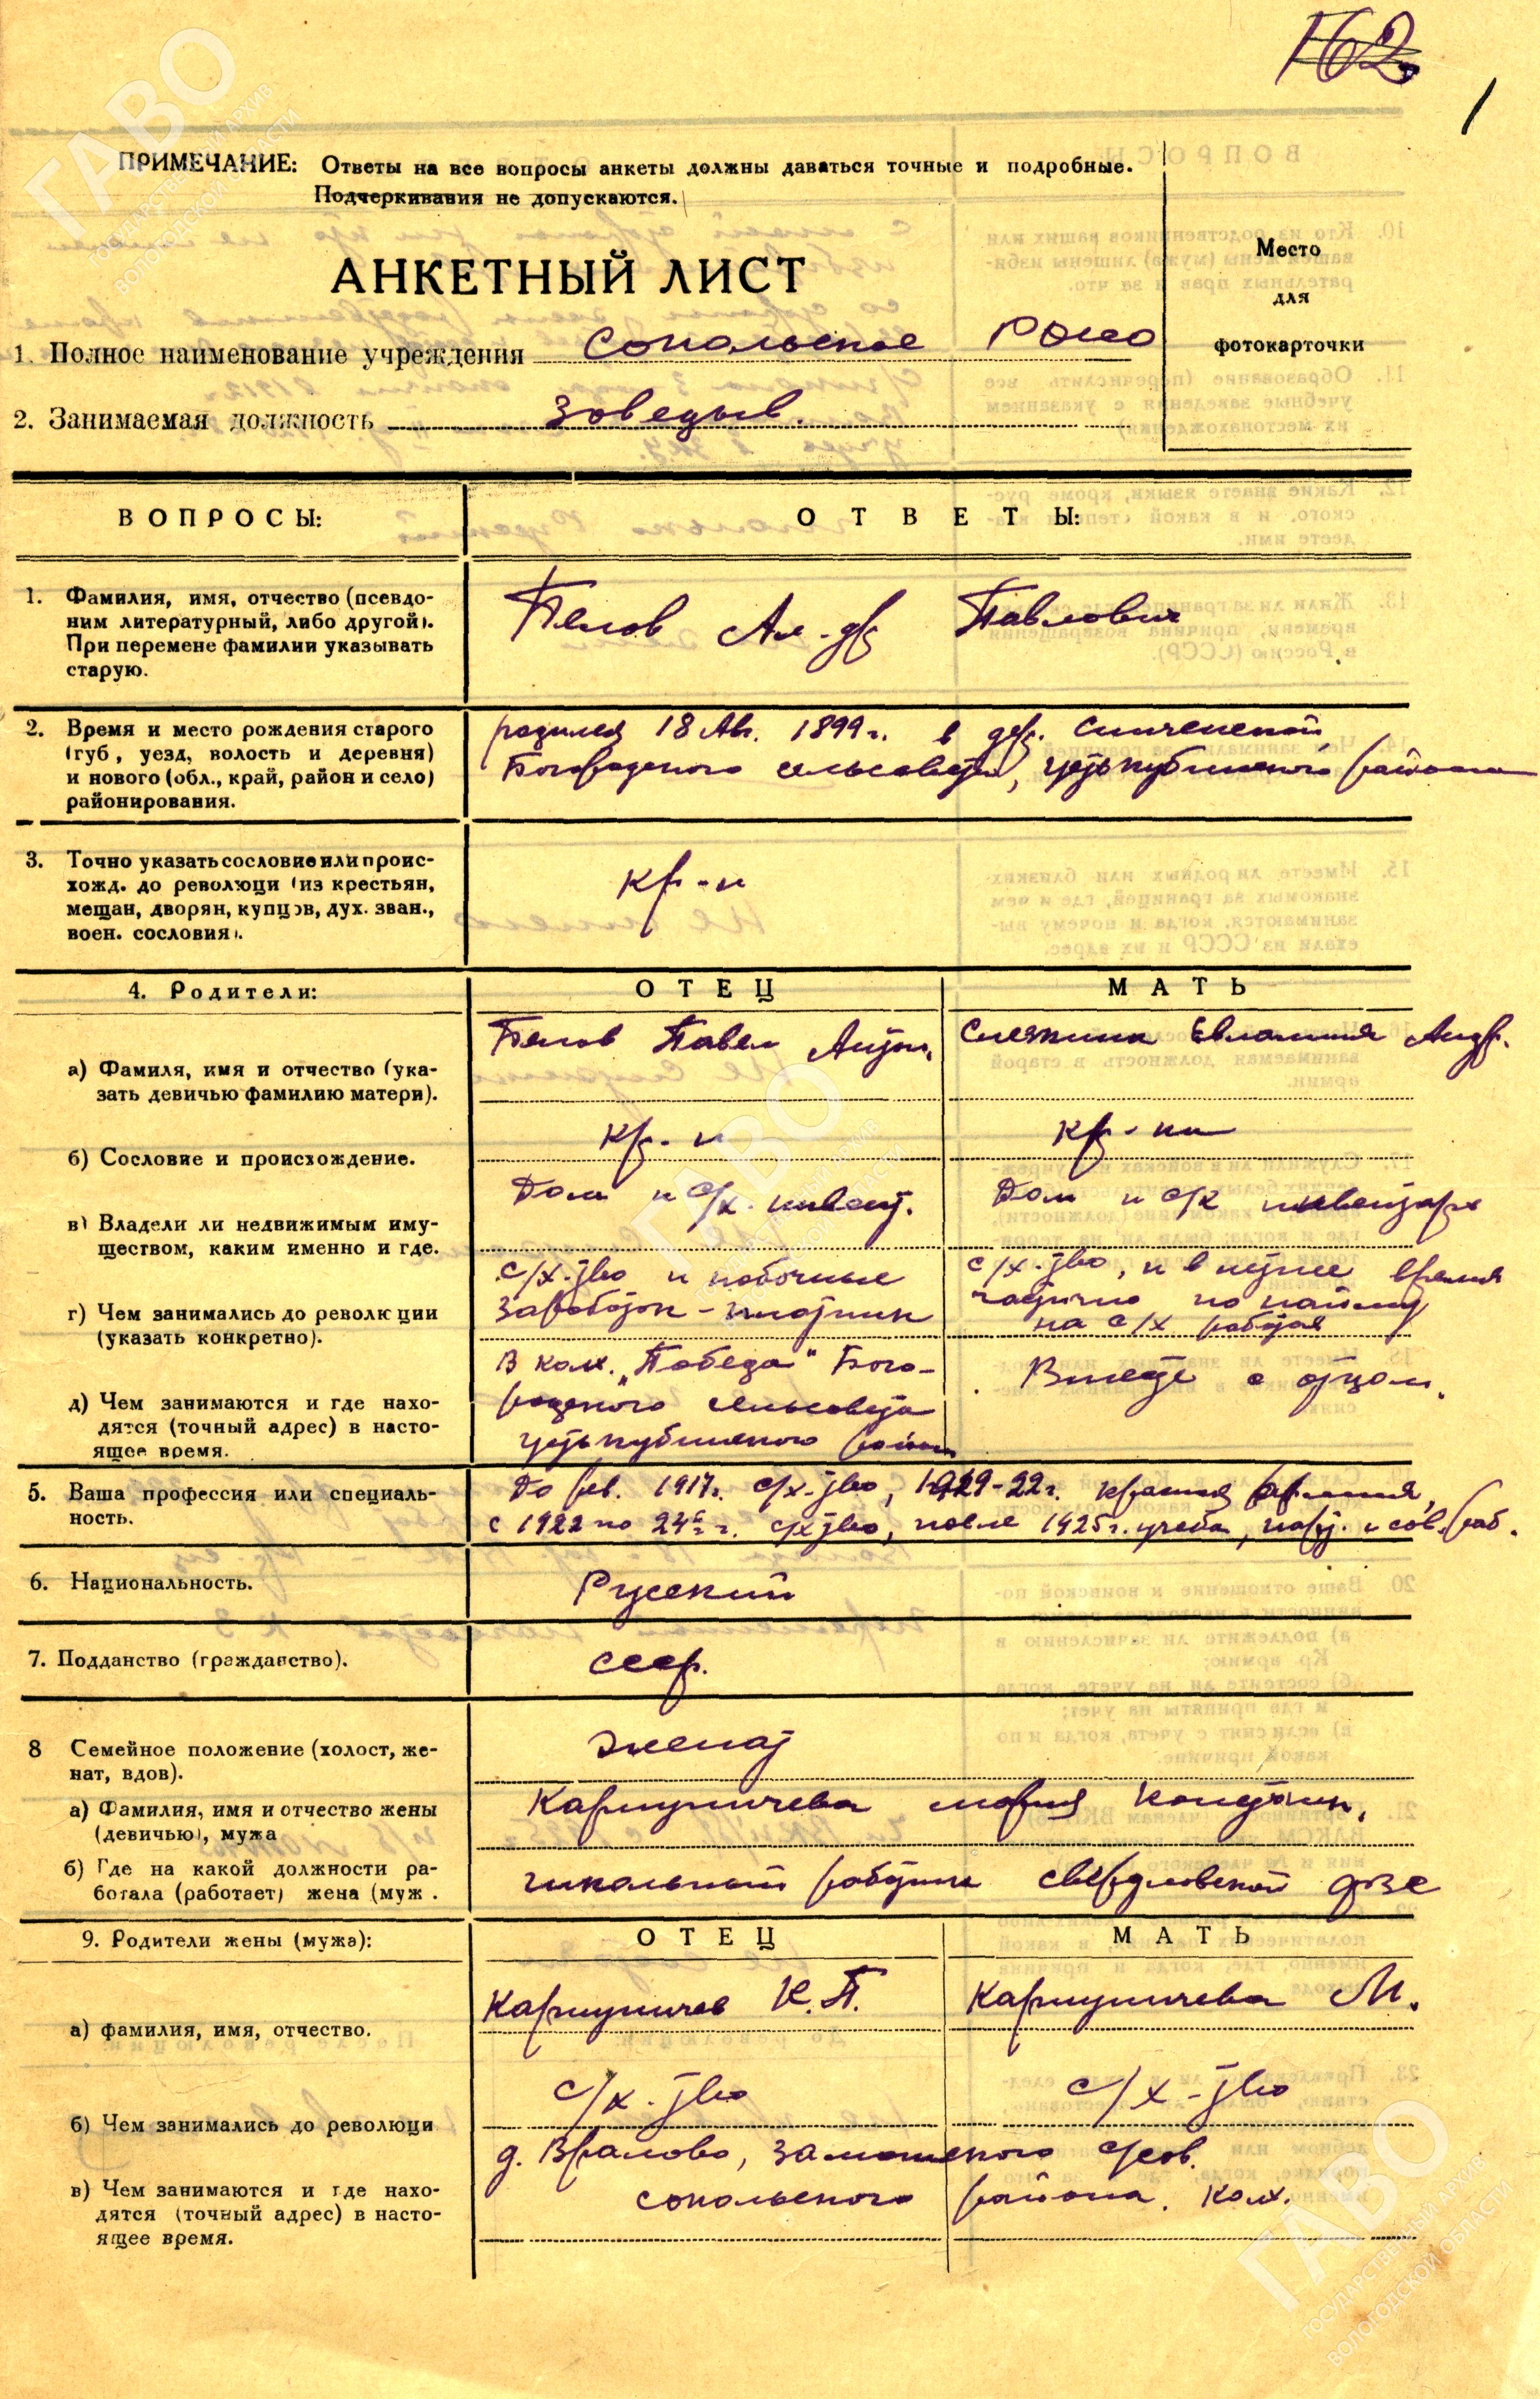 162
1
ПРИМЕЧАНИЕ: Ответы на все вопросы анкеты должны даваться точные и подробные.
Подчеркивания не допускаются.
Место
для
фотокарточки
АНКЕТНЫЙ ЛИСТ
1. Полное наименование учреждения Сокольское РОНО
2. Занимаемая должность Заведыв.
ВОПРОСЫ: ОТВЕТЫ:
1. Фамилия, имя, отчество (псевдо-
ним литературный, либо другой).
При перемене фамилии указывать
старую.
Белов Ал-др Павлович
2. Время и место рождения старого
(губ, уезд, волость и деревня)
и нового (обл., край, район и село)
районирования.
родился 18 Авг. 1899 г. в дер.
Богородского сельсовета, Устькубинского района
3. Точно указать сословие или проис-
хожд. до революци (из крестьян,
мещан, дворян, купцов, дух. зван.,
воен. сословия).
кр-н
4. Родители: ОТЕЦ МАТЬ
а) Фамиля, имя и отчество (ука-
зать девичью фамилию матери).
Белов Павел Антон.
Евлампия Андр.
б) Сословие и происхождение.
кр-н
кр-ка
в) Владели ли недвижимым иму-
ществом, каким именно и где.
Дом и с/х. инвент.
Дом и с/х инвентарь
г) Чем занимались до революции
(указать конкретно).
с/х-тво и побочные
заработок - плотник
с/х-тво, и в время
частично по найму
на с/х работах
д) Чем занимаются и где нахо-
дятся (точный адрес) в насто-
ящее время.
В колх. "Победа" Бого-
родского сельсовета
Устькубинского района
Вместе с отцом.
5. Ваша профессия или специаль-
ность.
До фев. 1917 г. с/х-тво, 1919-22 г. красная армия,
с 1922 по 24 г. с/х-тво, после 1925 г. учеба, парт. и сов. раб.
6. Национальность.
Русский
7. Подданство (гражданство).
ссср.
8 Семейное положение (холост, же-
нат, вдов).
женат
а) Фамилия, имя и отчество жены
(девичью), мужа
Кармуничева Мария Констан.
б) Где на какой должности ра-
ботала (работает) жена (муж.
школьный работник свердловской
9. Родители жены (мужа): ОТЕЦ МАТЬ
а) фамилия, имя, отчество.
Кармуничев К. П.
Кармуничева М.
б) Чем занимались до революци
с/х-тво
с/х-тво
в) Чем занимаются и где нахо-
дятся (точный адрес) в насто-
ящее время.
д. Замошского с/сов.
сокольского района. колх.
ГАВО
ГОСУДАРСТВЕННЫЙ АРХИВ
ВОЛОГОДСКОЙ ОБЛАСТИ